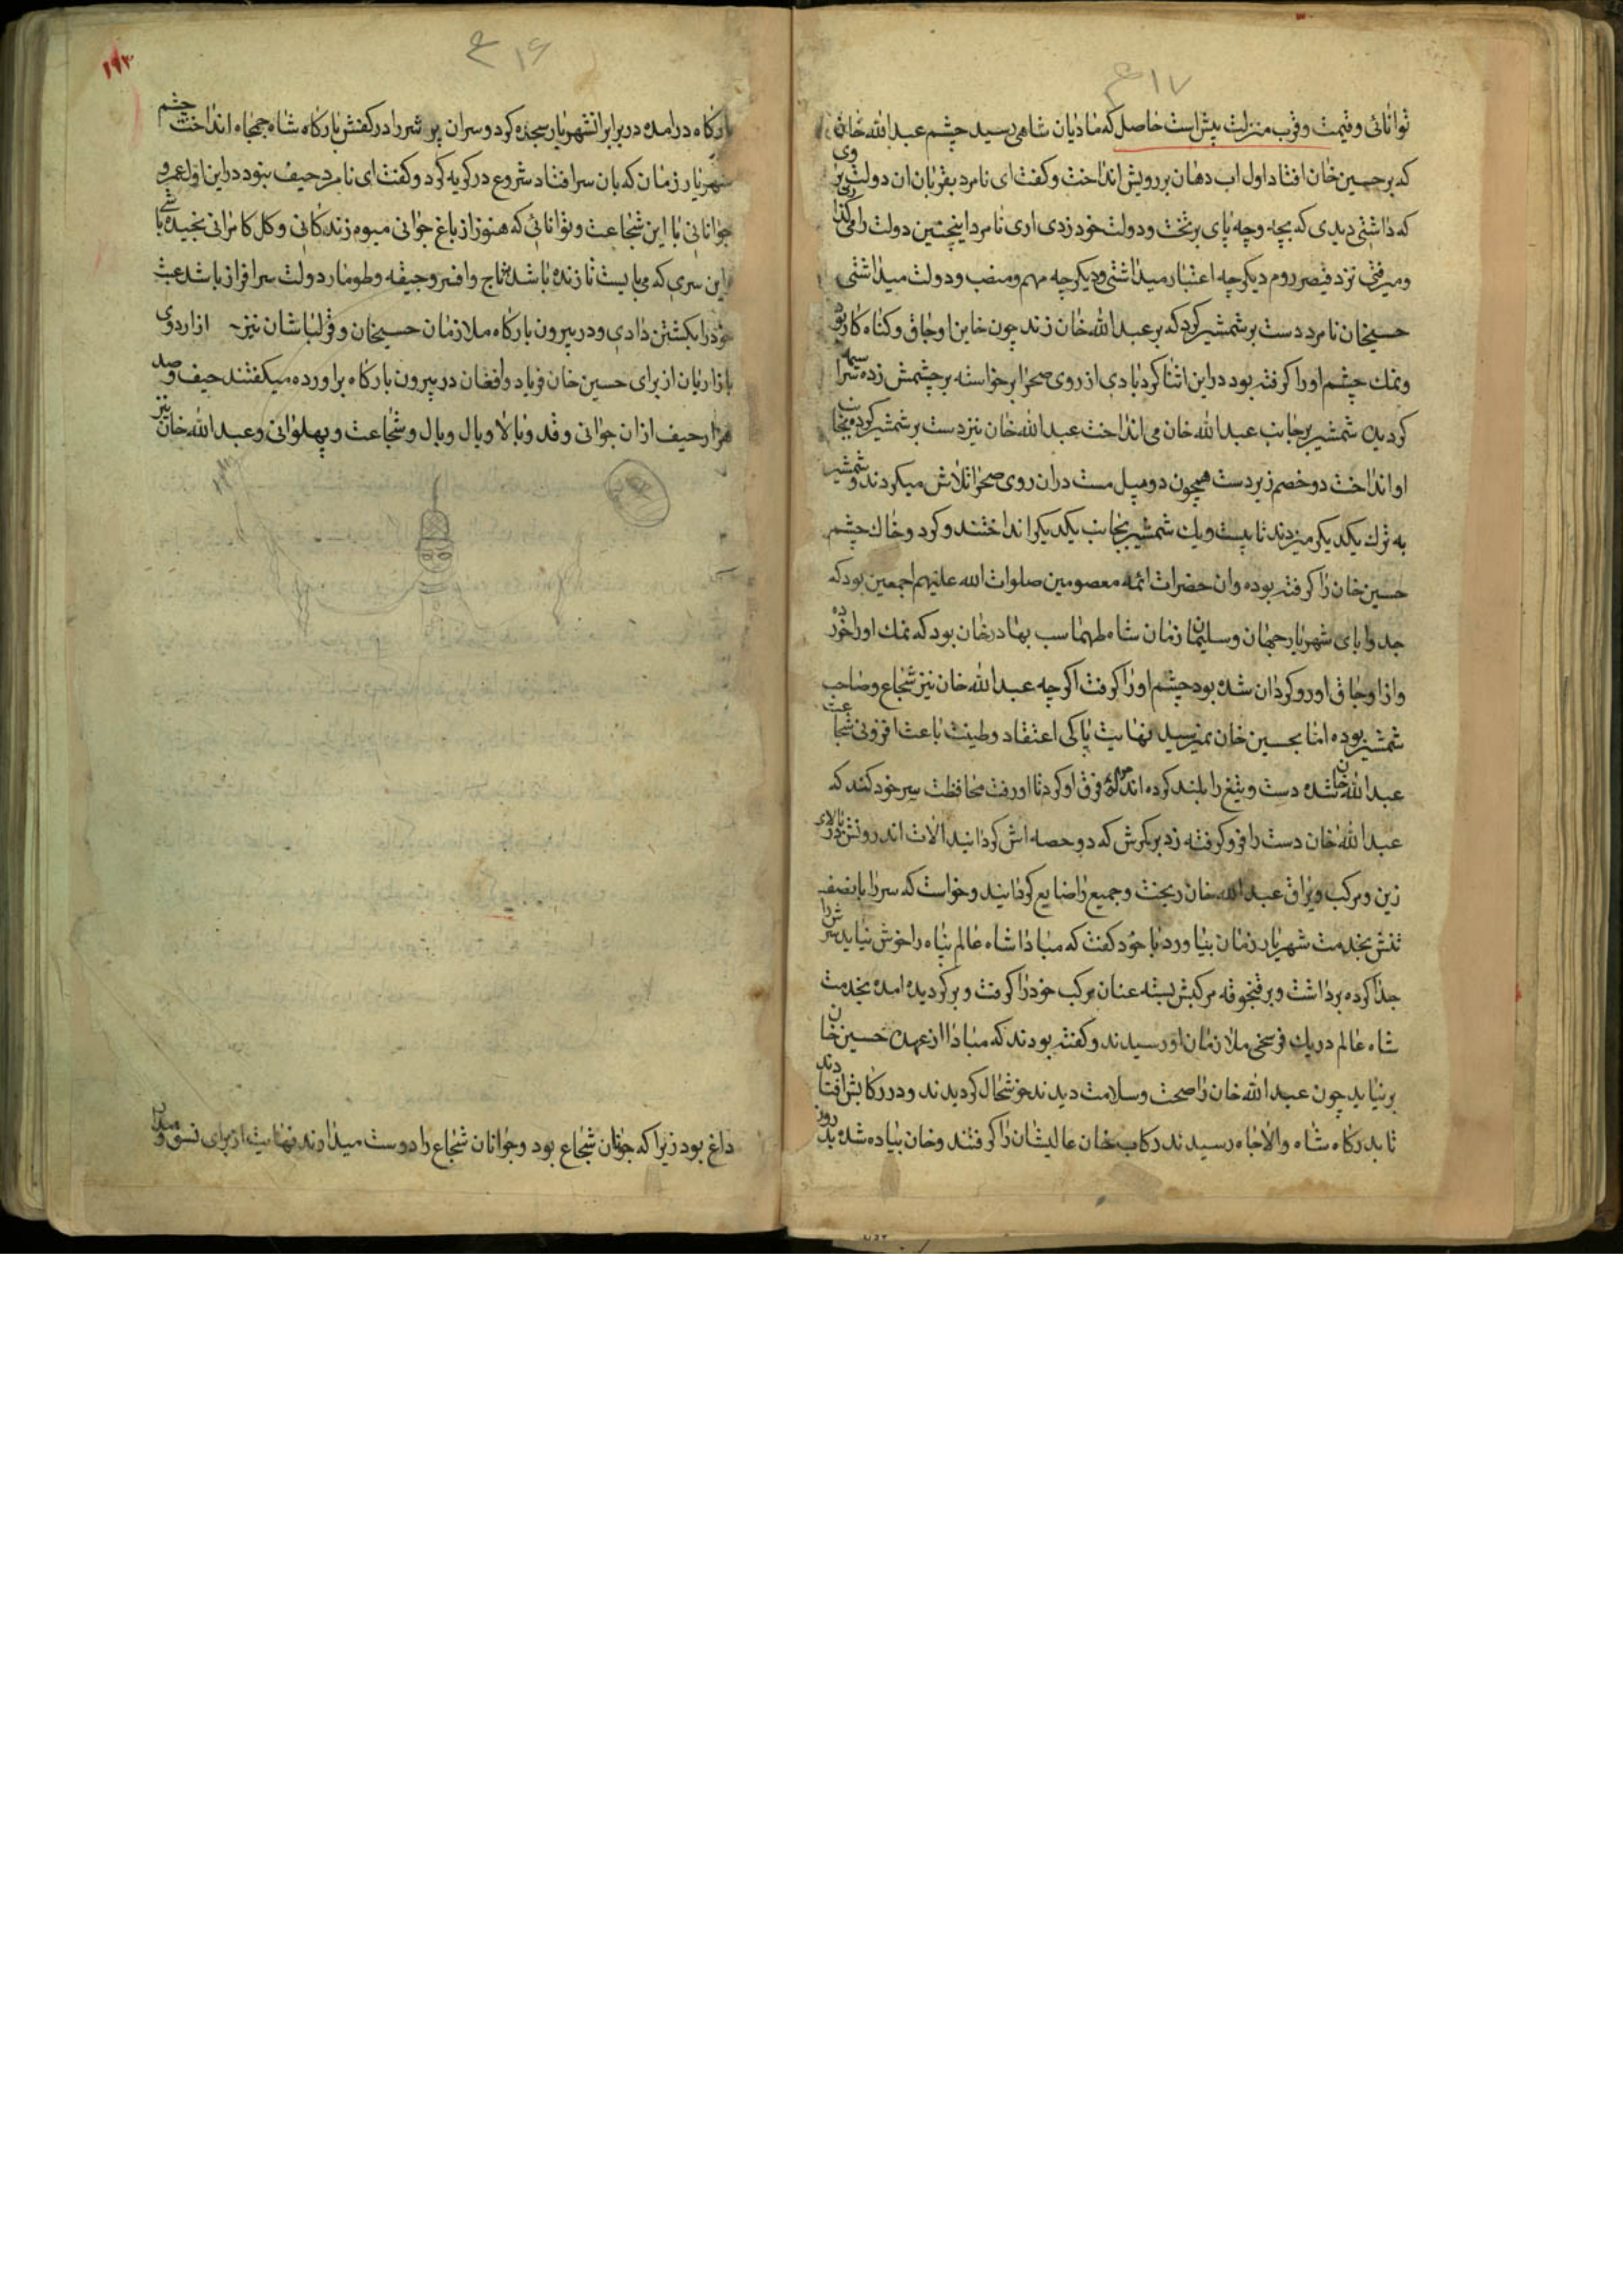 ۴۱۷
توانائی و قیمت و قرب منزلت بیش است حاصل که مادیان شاهی رسید چشم عبدالله خان
که بر حسین خان افتاد اول اب دهان بر رویش انداخت و کفت ای نامرد بقربان ان دولت بروی
که داشتی دیدی که بچه وچه پای بر تخت و دولت خود زدی اری نامرد اینچنین دولت را می کذاری
و میرفتی نزد قیصر روم دیکر چه اعتبار میداشتی و دیکر چه مهم و منصب و دولت میداشتی
حسینخان نامرد دست بر شمشیر کرد که بر عبدالله خان زند چون خاین اوجاق و کناه کار بود
و نمك چشم او را کرفته بود در این اثنا کرد بادی از روی صحرا برخواسته بر چشمش زده
کردید شمشیر بر جانب عبدالله خان می انداخت عبدالله خان نیز دست بر شمشیر کرده بجانب
او انداخت دو خصم زبردست همچون دو پیل مست دران روی صحرا تلاش میکردند و شمشیر
به ترك یکدیکر میزدند تا بیست و یك شمشیر بجانب یکدیکر انداختند و کرد و خاك چشم
حسین خان را کرفته بوده و ان حضرات ائمه معصومین صلوات الله علیهم اجمعین بود که
جد و ابای شهریار جهان و سلیمان زمان شاه طهماسب بهادرخان بود که نمك او را خورده
و از اوجاق او رو کردان شده بود چشم او را کرفت اکرچه عبدالله خان نیز شجاع و صاحب
شمشیر بوده اما بحسین خان نمیرسید نهایت پاکی اعتقاد و طینت باعث افزونی شجاعت
عبدالله خان شده دست و تیغ را بلند کرده فرق او کرد تا او رفت محافظت سر خود کند که
عبدالله خان دست را فرو کرفته زد بر کمرش که دو حصه اش کردانید الات اندرونش در بالای
زین و مرکب و یراق عبدالله خان ریخت و جمیع را ضایع کردانید و خواست که سر را با نصف
تنش بخدمت شهریار زمان بیاورد با خود کفت که مبادا شاه عالم پناه را خوش نیاید سرش را
جدا کرده برداشت و بر قنجوقه مرکبش بسته عنان مرکب خود را کرفت و بر کردیده امد بخدمت
شاه عالم در یك فرسخی ملازمان او رسیدند و کفته بودند که مبادا از عهده حسین خان
بر نیاید چون عبدالله خان را صحت و سلامت دیدند خوشحال کردیدند و در رکابش افتادند
تا بدرکاه شاه والاجاه رسیدند رکاب خان عالیشان را کرفتند و خان پیاده شده بدرون
۴۱۶
۱۹۲
بارکاه درامده در برابر انشهریار سجده کرد و سر ان پر شر را در کفش بارکاه شاه جمجاه انداخت چشم
شهریار زمان که بان سر افتاد شروع در کریه کرد و کفت ای نامرد حیف نبود در این اول عمر و
جوانانی با این شجاعت و توانائی که هنوز از باغ جوانی میوه زندکانی و کل کامرانی نچیده باشی
این سری که می بایست تا زنده باشد بتاج و افسر و جیقه و طومار دولت سرافراز باشد عبث
خود را بکشتن دادی و در بیرون بارکاه ملازمان حسینخان و قزلباشان نیز از اردوی
بازاریان از برای حسین خان فریاد و افغان در بیرون بارکاه براورده میکفتند حیف و صد
هزار حیف ازان جوانی و قد و بالا و یال و بال و شجاعت و پهلوانی و عبدالله خان نیز
داغ بود زیرا که جوان شجاع بود و جوانان شجاع را دوست میدارند نهایت از برای نسق و